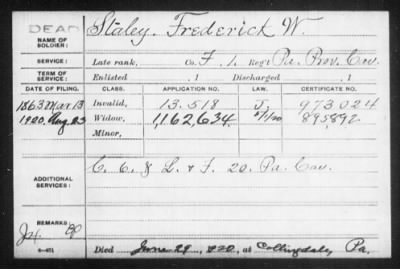 DEAD
NAME OF SOLDIER: Staley, Frederick W.
SERVICE: Late rank, Co. F, 1, Reg't Pa. Prov. Cav.
TERM OF SERVICE: Enlisted , 1 Discharged , 1
DATE OF FILING. CLASS. APPLICATION NO. LAW. CERTIFICATE NO.
1863 Mar 13 Invalid, 13.518 973024
1920. Aug 23 Widow, 1,162,634 895892
Minor,
ADDITIONAL SERVICES: C. C. & L. & F. 20. Pa. Cav.
REMARKS:
Died June 29, 1920, at Collingdale, Pa.